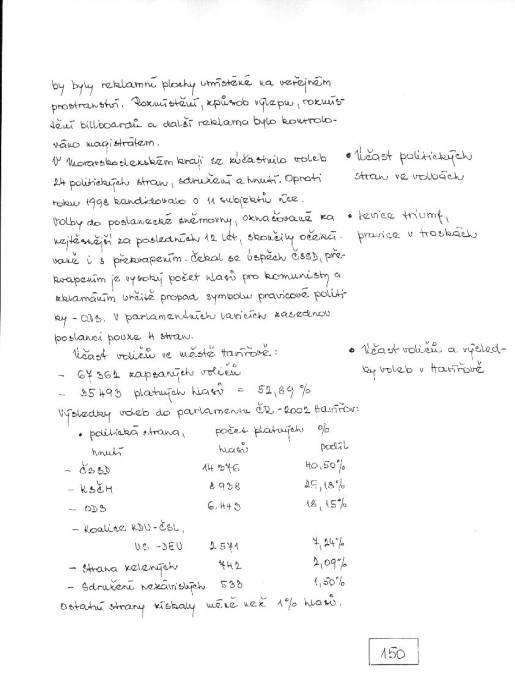 by byly reklamní plochy umístěné na veřejném
prostranství. Rozmístění, způsob výlepu, rozmís-
tění billboardů a další reklama bylo kontrolo-
váno magistrátem.
V Moravskoslezském kraji se zúčastnilo voleb
24 politických stran, sdružení a hnutí. Oproti
roku 1998 kandidovalo o 11 subjektů více.
• Účast politických
stran ve volbách
Volby do poslanecké sněmovny, označované za
nejtěsnější za posledních 12 let, skončily očeká-
vaně i s překvapením. Čekal se úspěch ČSSD, pře-
kvapením je vysoký počet hlasů pro komunisty a
zklamáním určitě propad symbolu pravicové politi-
ky - ODS. V parlamentních lavicích zasednou
poslanci pouze 4 stran.
• Levice triumf,
pravice v troskách
Účast voličů ve městě Havířově:
- 67 362 zapsaných voličů
- 35 493 platných hlasů = 52,89 %
• Účast voličů a výsled-
ky voleb v Havířově
Výsledky voleb do parlamentu ČR - 2002 Havířov:
• politická strana, počet platných %
hnutí hlasů podíl
- ČSSD 14 376 40,50%
- KSČM 8 938 25,18%
- ODS 6.443 18,15%
- Koalice KDU-ČSL,
US -DEU 2 571 7,24%
- Strana zelených 742 2,09%
- Sdružení nezávislých 533 1,50%
Ostatní strany získaly méně než 1% hlasů.
150